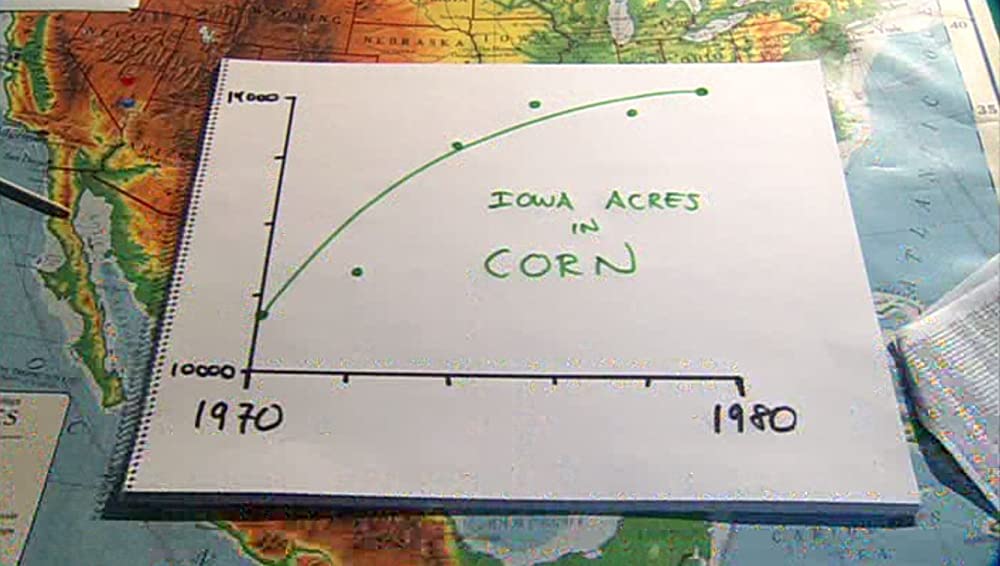 NEBRASKA
14000
IOWA ACRES
IN
CORN
10000
1970
1980
40
35